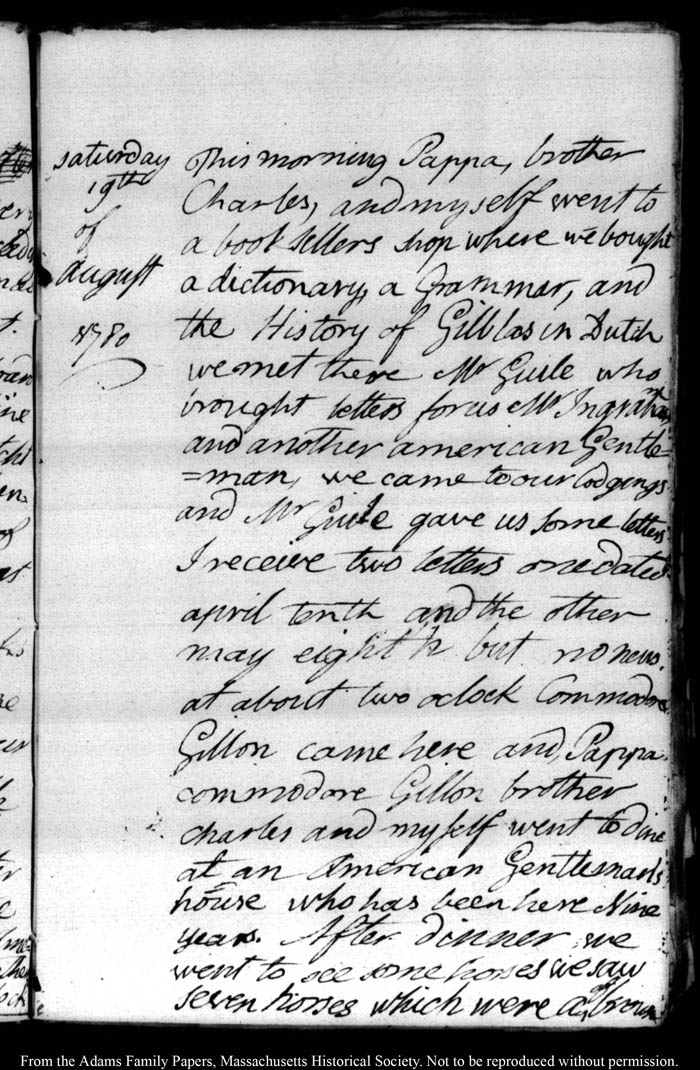 saturday
19th
of
august
1780
This morning Pappa, brother
Charles, and myself went to
a book sellers shop where we bought
a dictionary, a Grammar, and
the History of Gilblas in Dutch
we met there Mr Guile who
brought letters for us Mr Ingraham
and another american Gentle=
=man, we came to our lodgings
and Mr Guile gave us some letters
I receive two letters one dated
april tenth and the other
may eighth but no news.
at about two oclock Commodore
Gillon came here and, Pappa
commodore Gillon brother
charles and myself went to dine
at an American Gentlemans
house who has been here Nine
years. After dinner we
went to see some horses we saw
seven horses which were all brown
From the Adams Family Papers, Massachusetts Historical Society. Not to be reproduced without permission.